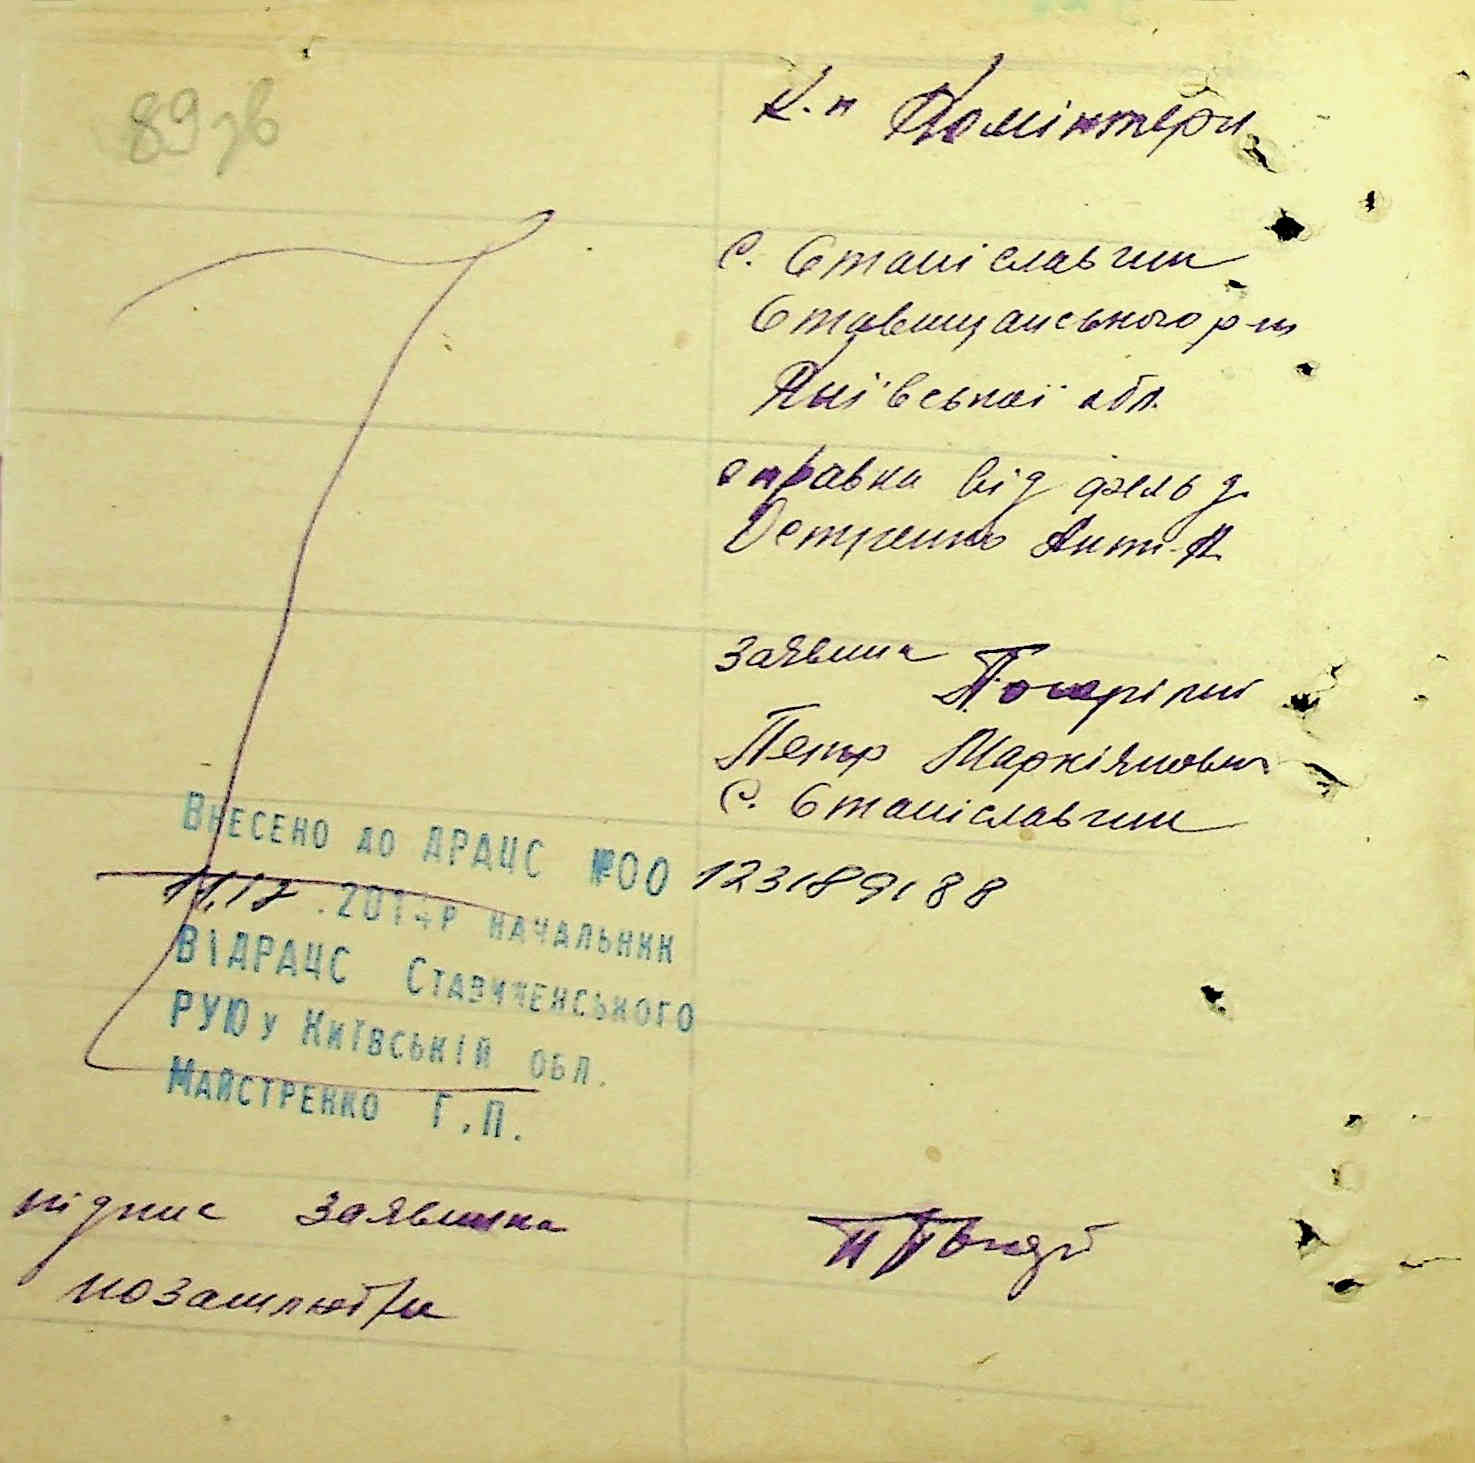 89 зв
К-п Комінтерн
С. Станіславчик
Ставищанського р-ну
Київської обл.
справка від фельд.
Остренко
заявила
Петр Маркіянович
С. Станіславчик
Внесено до ДРАЦС №00 123189188
11.12.2014р начальник
ВІДРАЦС Ставищенського
РУЮ у Київській обл.
Майстренко Г.П.
підпис заявника